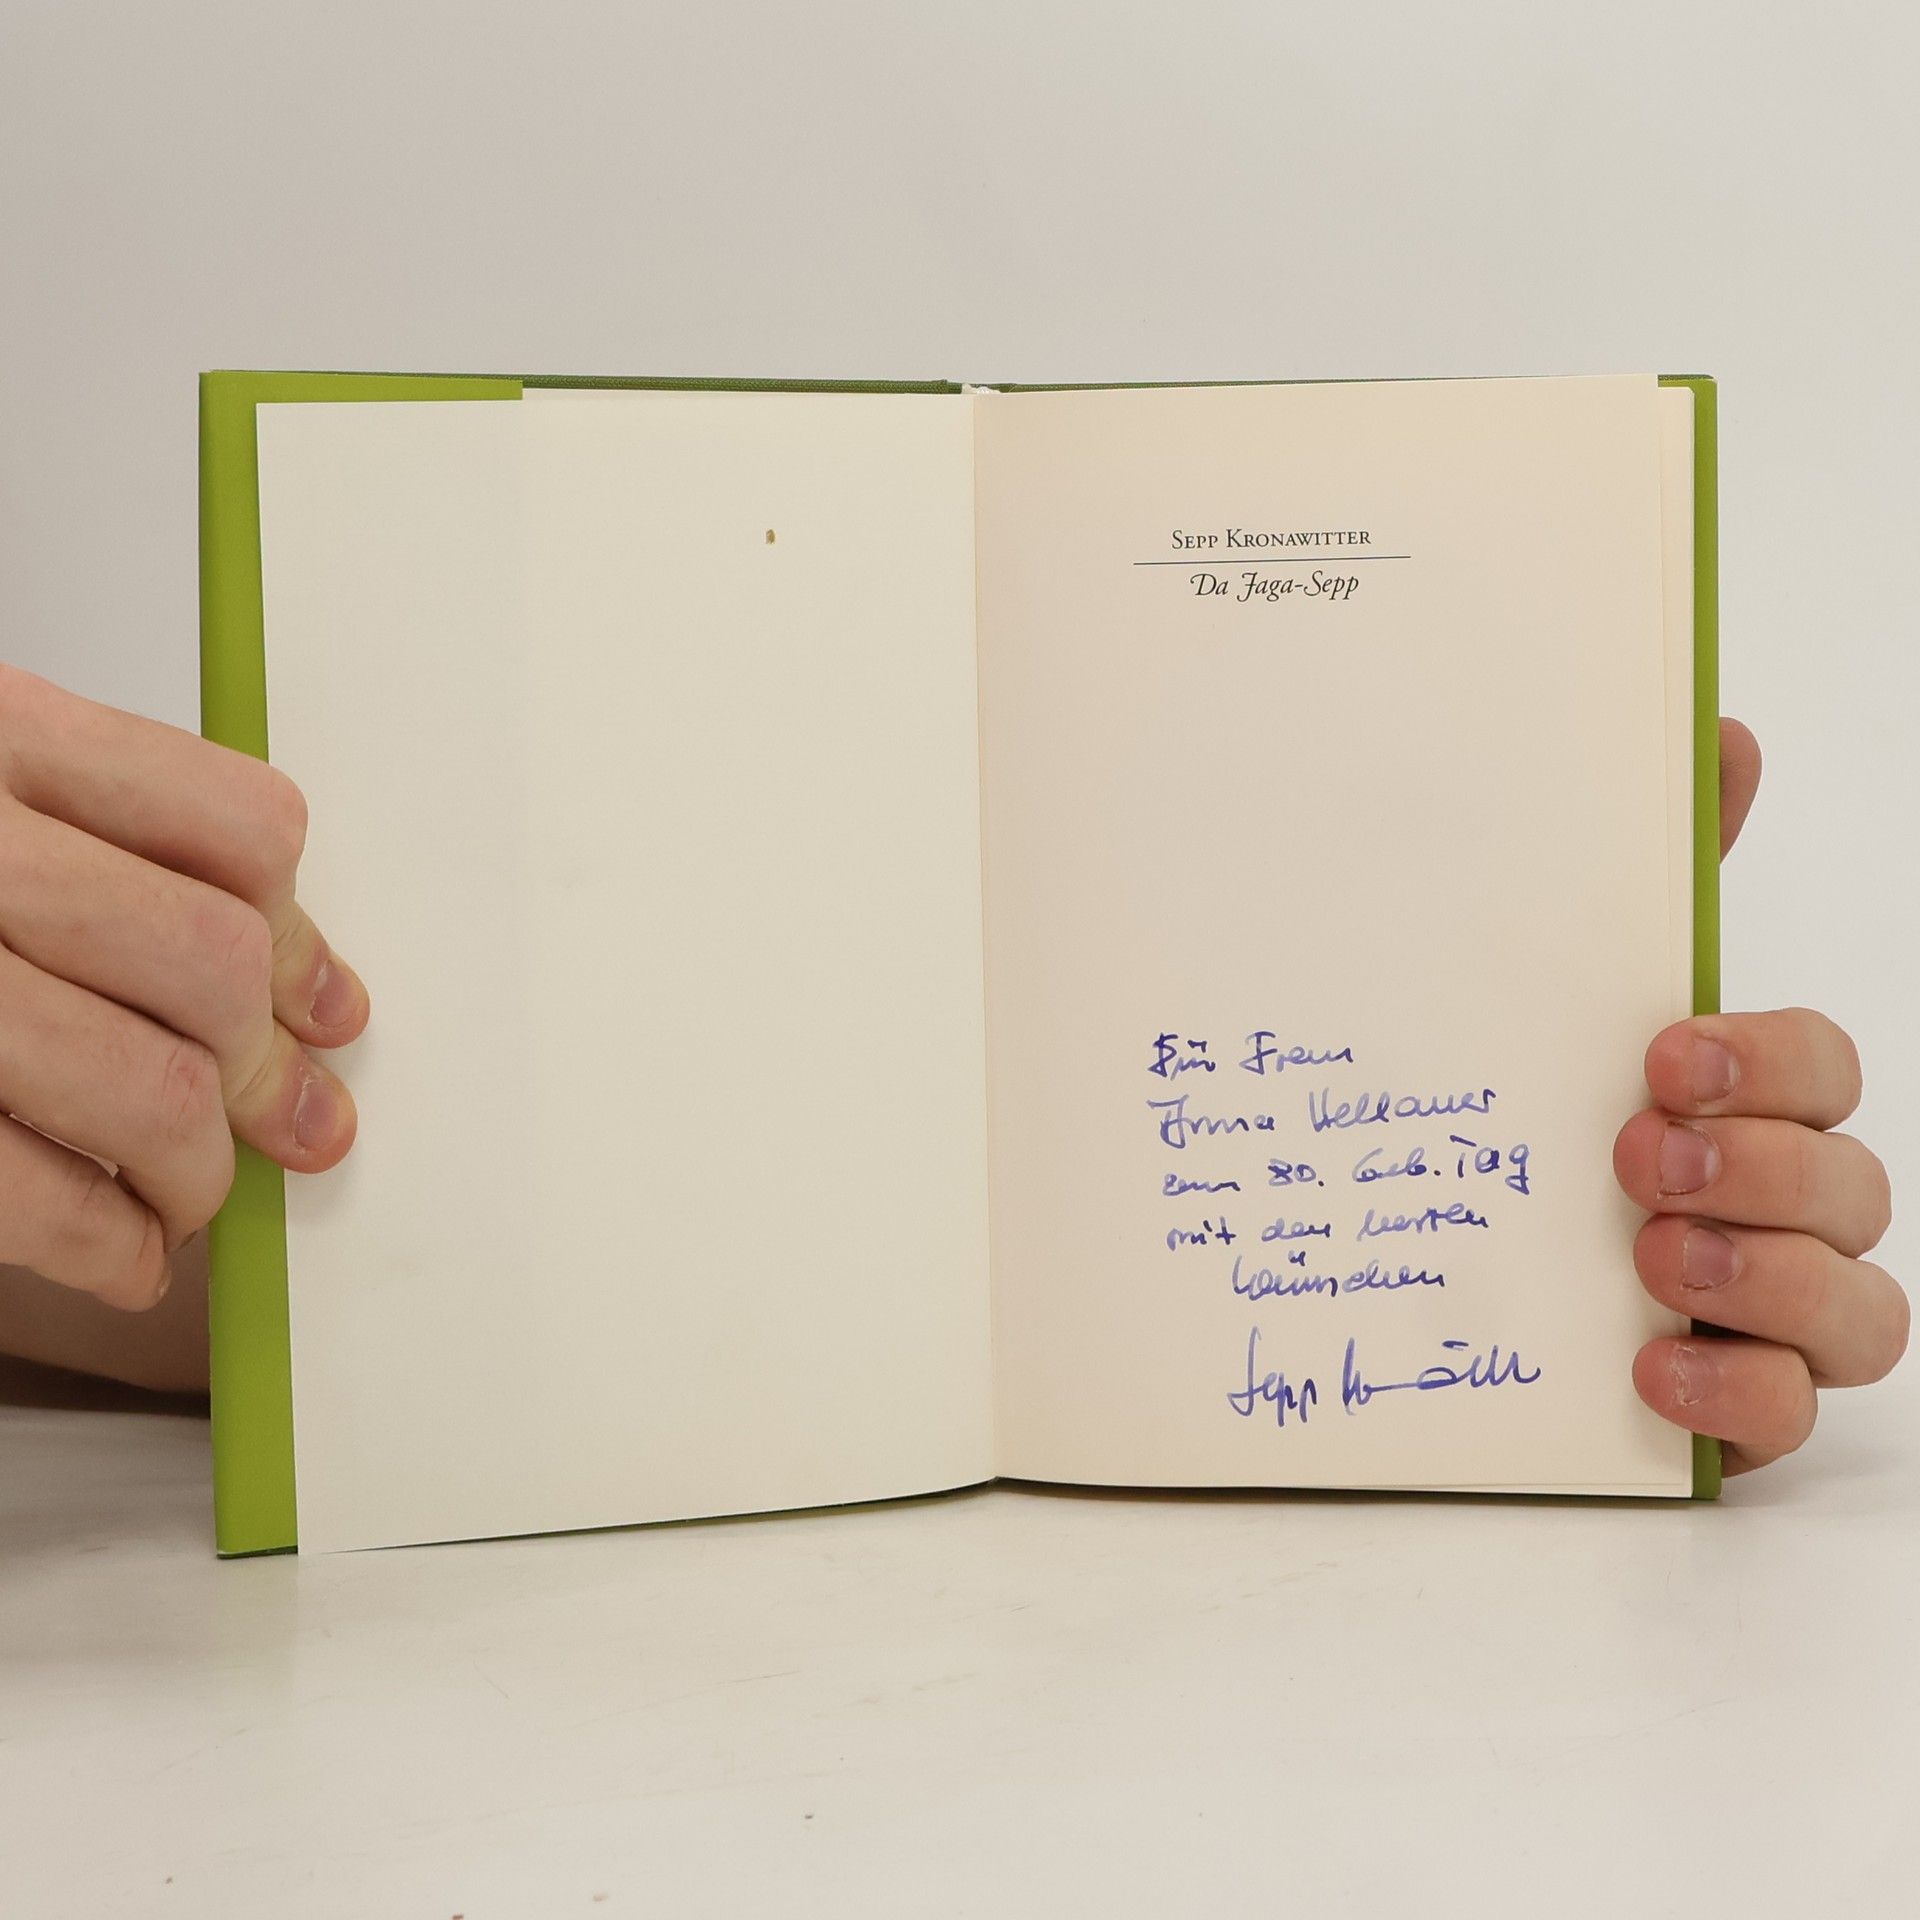 SEPP KRONAWITTER
Da Jaga-Sepp
Für Frau
Anna
zum 80. Geb. Tag
mit den besten
Wünschen
Sepp